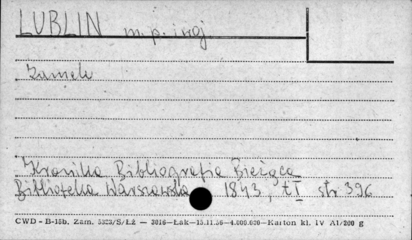 LUBLIN m. p. i woj
Zamek
Kronika Bibliografia Bieżąca
Biblioteka Warszawska 1843, t I str 396
CWD - B-15b. Zam. 5323/S/Łż — 3016 — Łsk — 15.11.56 — 4.000.000 — Karton kl. IV A1/200 g